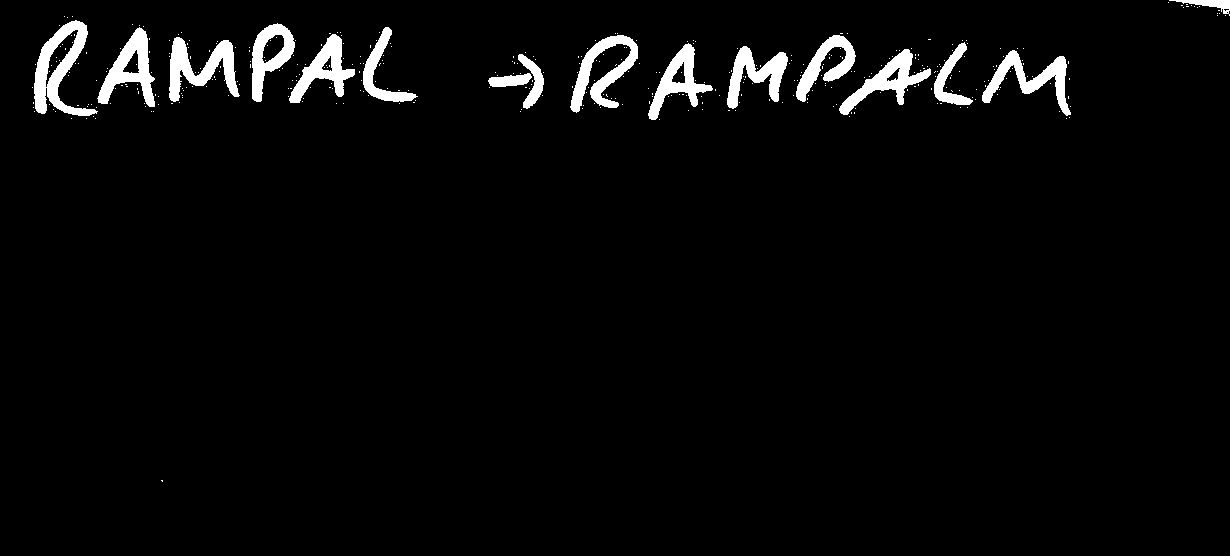 RAMPAL → RAMPALM